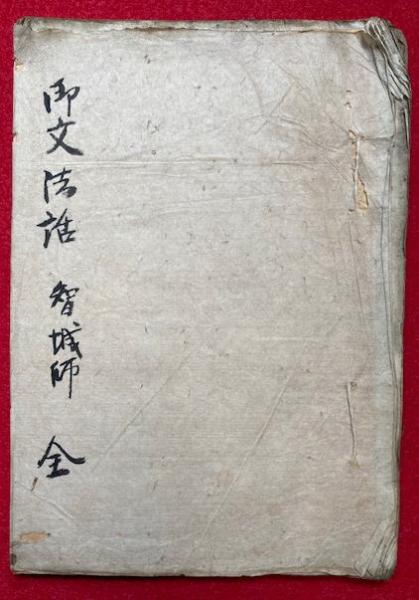 御文法話 智城師 全